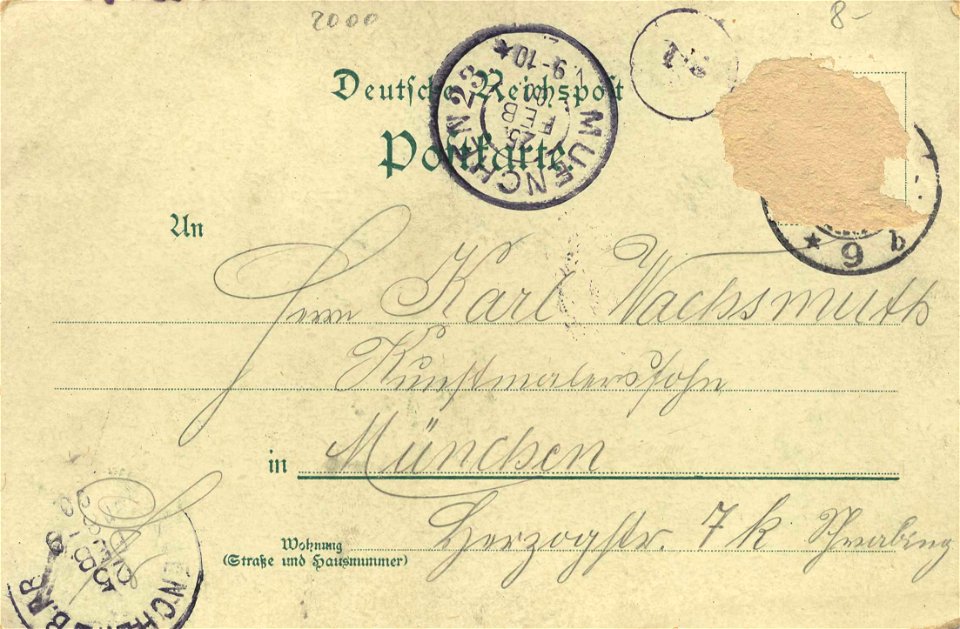 2000
8-
Deutsche Reichspost
Postkarte.
MUENCHEN 23.
25.
FEB
9-10
9 b
An
Herrn Karl Wachsmuth
Kunstmalerssohn
in München
Herzogstr. 7 k Schwabing
Wohnung
(Straße und Hausnummer)